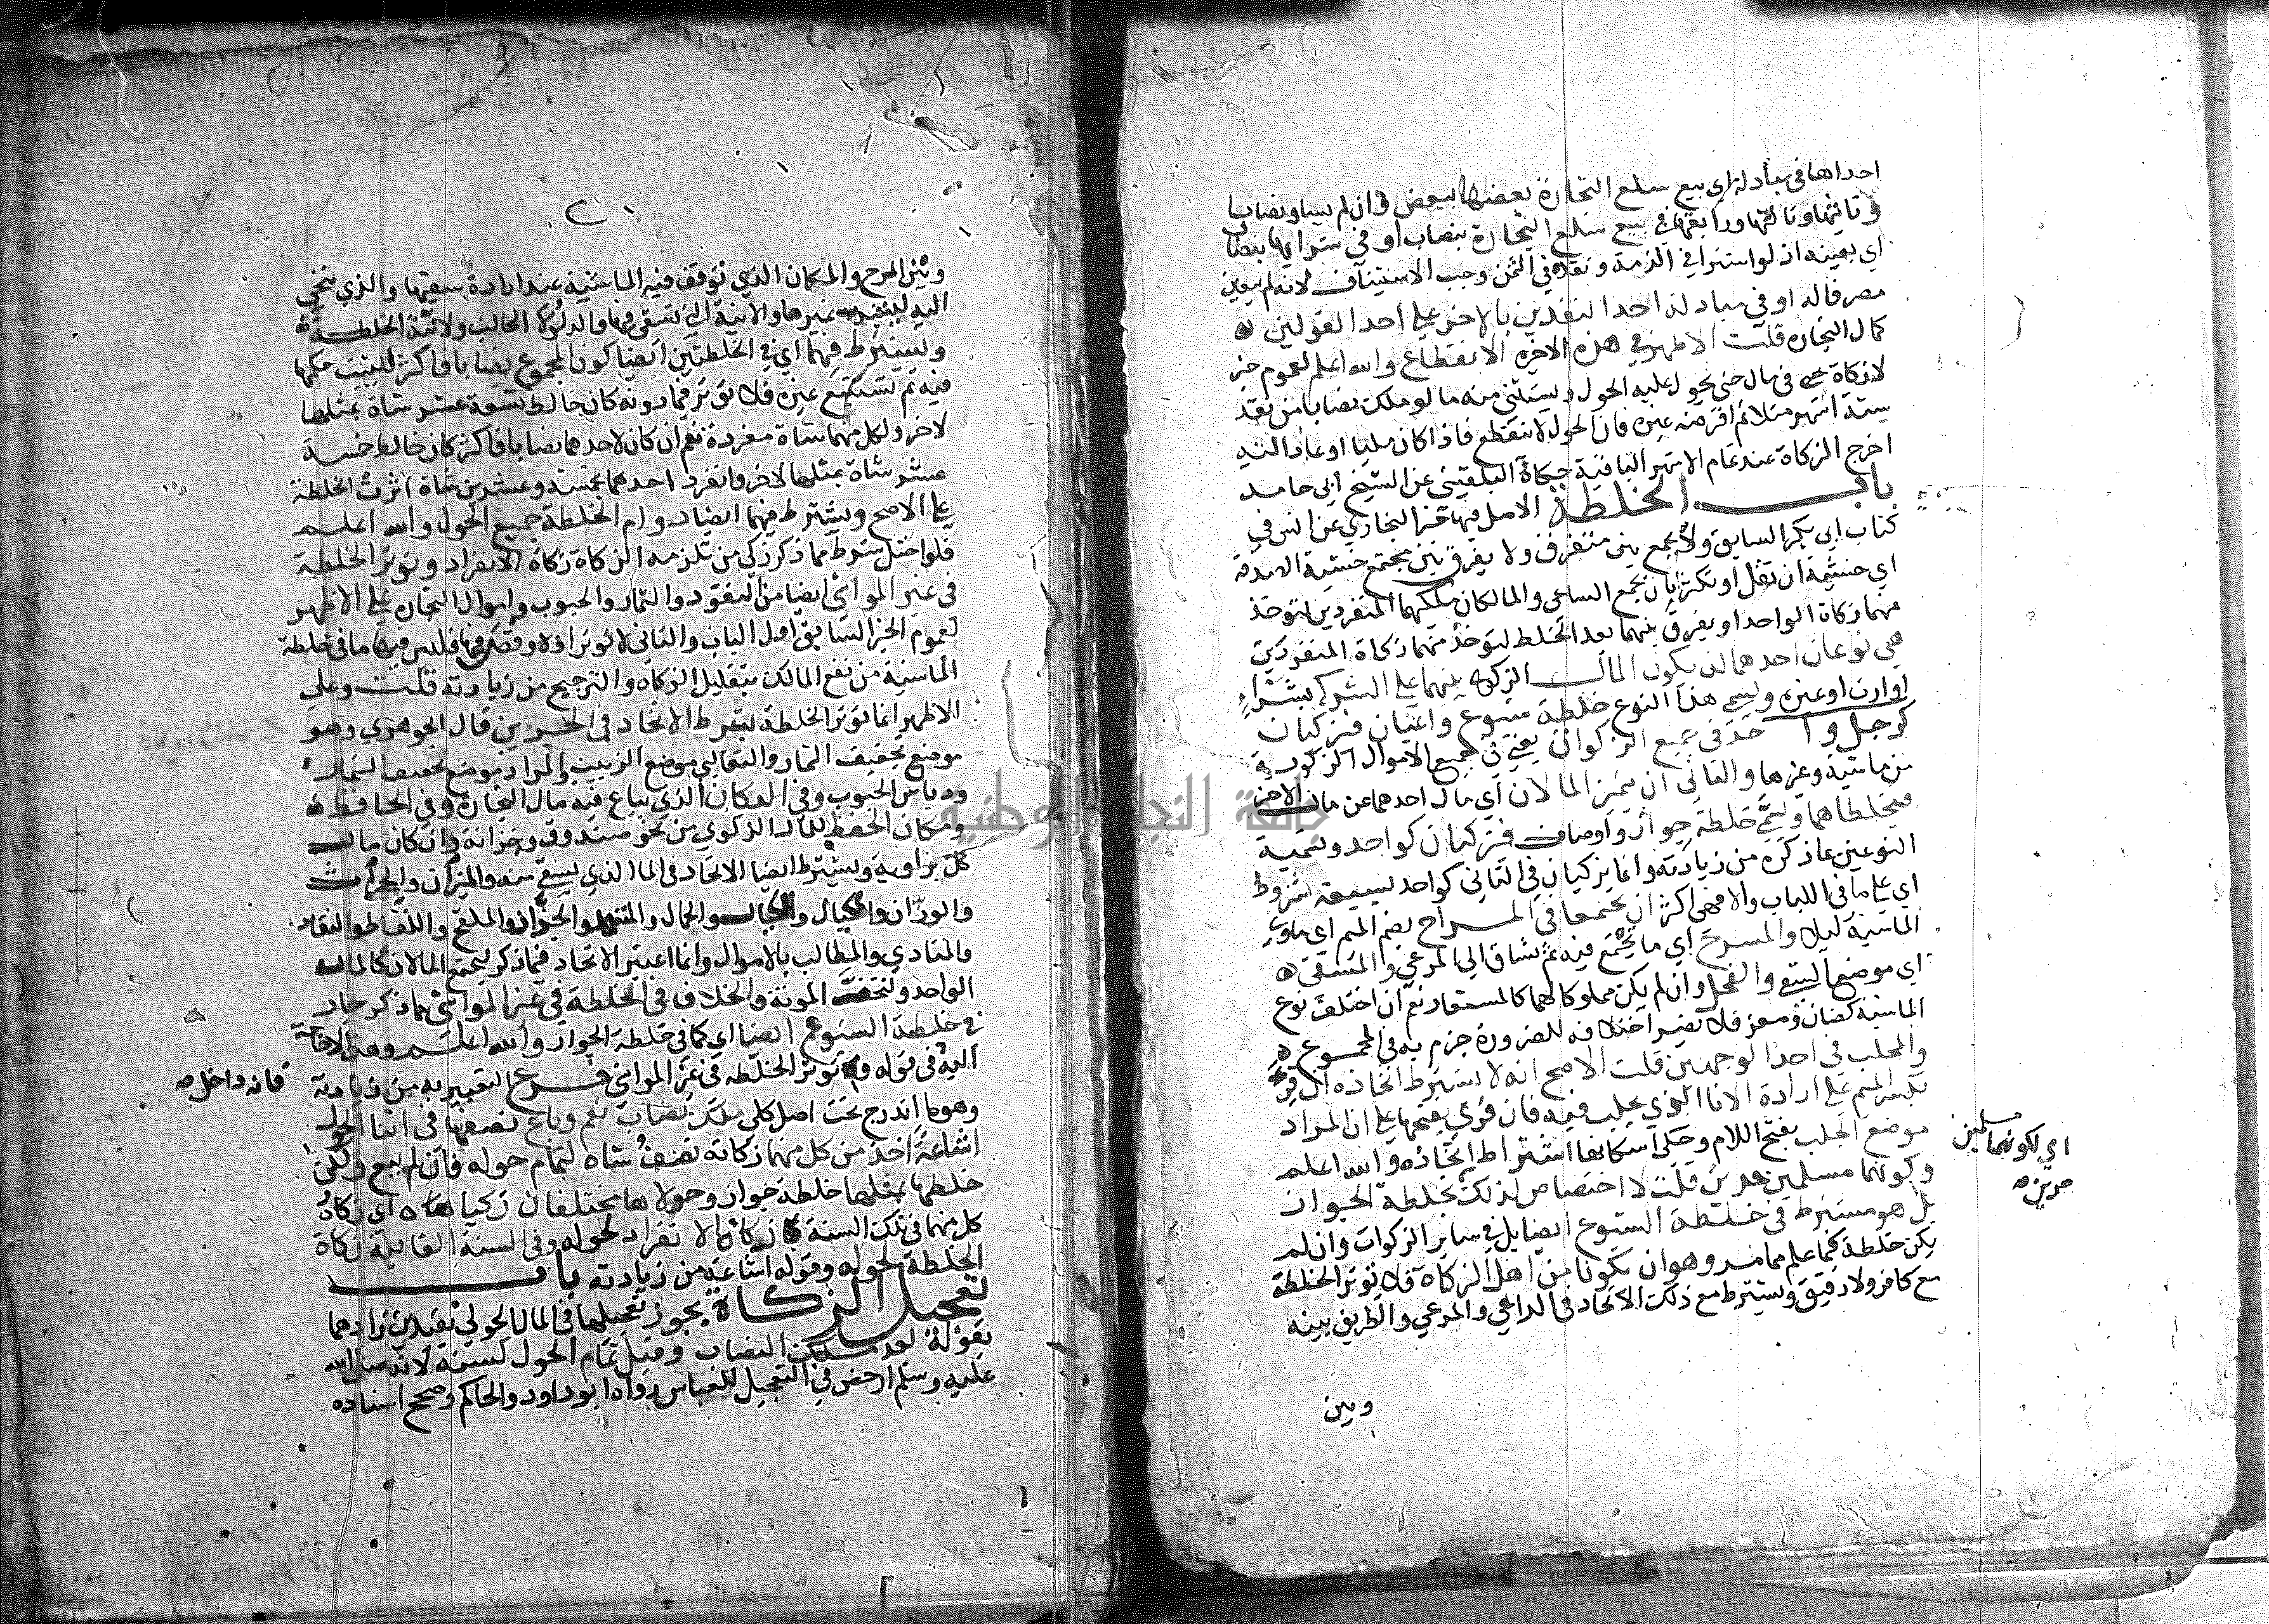 احداها في مبادلة اي بيع سلع التجارة بعضها ببعض وان لم يساو نصابا
وثانيها وثالثها ورابعها في بيع سلع التجارة بنصاب او في شرايها بنصاب
اي بعينه اذ لو اشترا في الذمة ونقده في الثمن وجب الاستيناف لانه لم يتعين
مصرفا له او في مبادلة احد النقدين بالاخر على احد القولين
كمال التجاره قلت الاظهر في هذه الاخيره الانقطاع والله اعلم لعموم خبر
لا زكاة في مال حتى يحول عليه الحول ويستثنى منه ما لو ملك نصابا من نقد
ستة اشهر مثلا ثم اقرضه غيره فان الحول لا ينقطع فاذا كان مليا او عاد اليه
اخرج الزكاة عند تمام الاشهر الباقية حكاه البلقيني عن الشيخ ابي حامد
باب الخلطة الاصل فيها خبر البخاري عن انس في
كتاب ابي بكر السابق ولا يجمع بين متفرق ولا يفرق بين مجتمع خشية الصدقة
اي خشية ان تقل او تكثر بان يجمع الساعي والمالكان ملكيهما المنفردين لتوخذ
منهما زكاة الواحد او يفرق بينهما بعد الخلط لتوخذ منهما زكاة المنفردين
هي نوعان احدهما ان يكون المال الزكوي بينهما على الشركة بشراء
او ارث او غيره ويسمى هذا النوع خلطة شيوع واعيان فيزكيان
كرجل واحد في جميع الزكوات يعني في جميع الاموال الزكوية
من ماشية وغيرها والثاني ان يتميز المالان اي مال احدهما عن مال الاخر
فيخلطاهما ويسمى خلطة جوار واوصاف فيزكيان كواحد وتسمية
النوعين بما ذكره من زيادته وانما يزكيان في الثاني كواحد بسبعة شروط
اي على ما في اللباب والا فهي اكثر ان يجتمعا في المراح بضم الميم اي ماوى
الماشية ليلا والمسرح اي ما يجتمع فيه ثم تساق الى المرعى والمسقى
اي موضع السقي والفحل وان لم يكن مملوكا لهما كالمستعار نعم ان اختلف نوع
الماشية كضان ومعز فلا يضير اختلافه للضرورة جزم به في المجموع
والمحلب في احد الوجهين قلت الاصح انه لا يشترط اتحاده ان قرئ
بكسر الميم على ارادة الانا الذي يحلب فيه فان قرئ بفتحها على ان المراد
موضع الحلب بفتح اللام وحكي اسكانها اشتراط اتحاده والله اعلم
وكونهما مسلمين حرين قلت لا اختصاص لذلك بخلطة الجوار
بل هو مشترط في خلطة الشيوع ايضا بل في ساير الزكوات وان لم
يكن خلطة كما علم مما مر وهو ان يكونا من اهل الزكاة فلا توثر الخلطة
مع كافر ولا رقيق ويشترط مع ذلك الاتحاد في الراعي والمرعى والطريق بينه
وبين
اي لكونهما مسلمين
حرين صح
وبين المسرح والمكان الذي توقف فيه الماشية عند ارادة سقيها والذي تنحى
اليه ليشرب غيرها والانية التي تسقى فيها والدلو لا الحالب ولا نية الخلطة
ويشترط فيهما اي في الخلطتين ايضا كون المجموع نصابا فاكثر ليثبت حكمها
فيه ثم تستتبع غيره فلا توثر فيما دونه كان خالط تسعة عشر شاة بمثلها
لاخر ولكل منهما شاة مفردة نعم ان كان لاحدهما نصابا فاكثر كان خالط خمسة
عشر شاة بمثلها لاخر وانفرد احدهما بخمسة وعشرين شاة اثرت الخلطة
على الاصح ويشترط فيهما ايضا دوام الخلطة جميع الحول والله اعلم
فلو اختل شرط مما ذكر زكى من تلزمه الزكاة زكاة الانفراد وتوثر الخلطة
في غير المواشي ايضا من النقود والثمار والحبوب واموال التجاره على الاظهر
لعموم الخبر السابق اول الباب والثاني لا توثر اذ لا وقص فيها فليس فيها ما في خلطة
الماشية من نفع المالك بتقليل الزكاة والترجيح من زيادته قلت وعلى
الاظهر انما توثر الخلطة بشرط الاتحاد في الجرين قال الجوهري وهو
موضع تجفيف الثمار والثعالبي موضع الزبيب والمراد موضع تجفيف الثمار
ودياس الحبوب وفي الدكان الذي يباع فيه مال التجارة وفي الحافظ
ومكان الحفظ للمال الزكوي من نحو صندوق وخزانة وان كان مال
كل بزاوية ويشترط ايضا الاتحاد في الما الذي يسقى منه والميزان والحراث
والوزان والكيال والحمال والمتعهد والجذاذ والملقح واللقاط والنقاد
والمنادي والمطالب بالاموال وانما اعتبر الاتحاد فيما ذكر ليجتمع المالان كالمال
الواحد ولتخف المونة والخلاف في الخلطة في غير المواشي بما ذكر جار
في خلطة الشيوع ايضا اي كما في خلطة الجوار والله اعلم وهذا الاخير
اليه في قوله وتوثر الخلطه في غير المواشي فرع التعبير به من زيادته
فانه داخل صح
وهو ما اندرج تحت اصل كلي ملك نصاب نعم وباع نصفها في اثنا الحول
اشاعة اخذ من كل منهما زكاته نصف شاه لتمام حوله فان لم يبع ولكن
خلطها بمثلها خلطة جوار وحولاهما مختلفان زكياها اي زكاة
كل منهما في تلك السنة زكاة الانفراد لحوله وفي السنة القابلة زكاة
الخلطة لحوله وقوله اشاعة من زيادته باب
تعجيل الزكاة يجوز تعجيلها في المال الحولي بقيدين زادهما
بقوله بعد ملك النصاب وقبل تمام الحول لسنة لانه صلى الله
عليه وسلم ارخص في التعجيل للعباس رواه ابو داود والحاكم وصحح اسناده
جامعة النجاح الوطنية